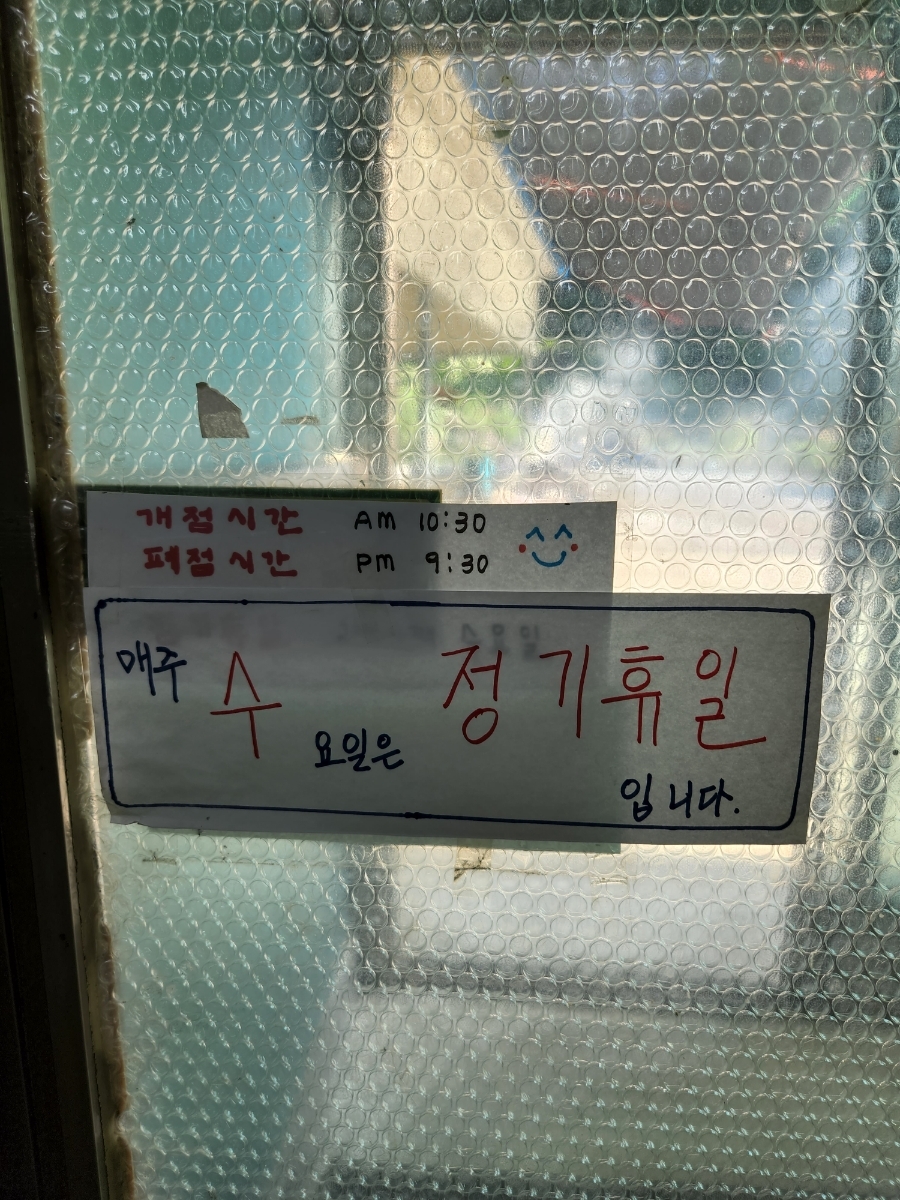 개점시간 AM 10:30
폐점시간 PM 9:30
매주 수요일은 정기휴일
입니다.